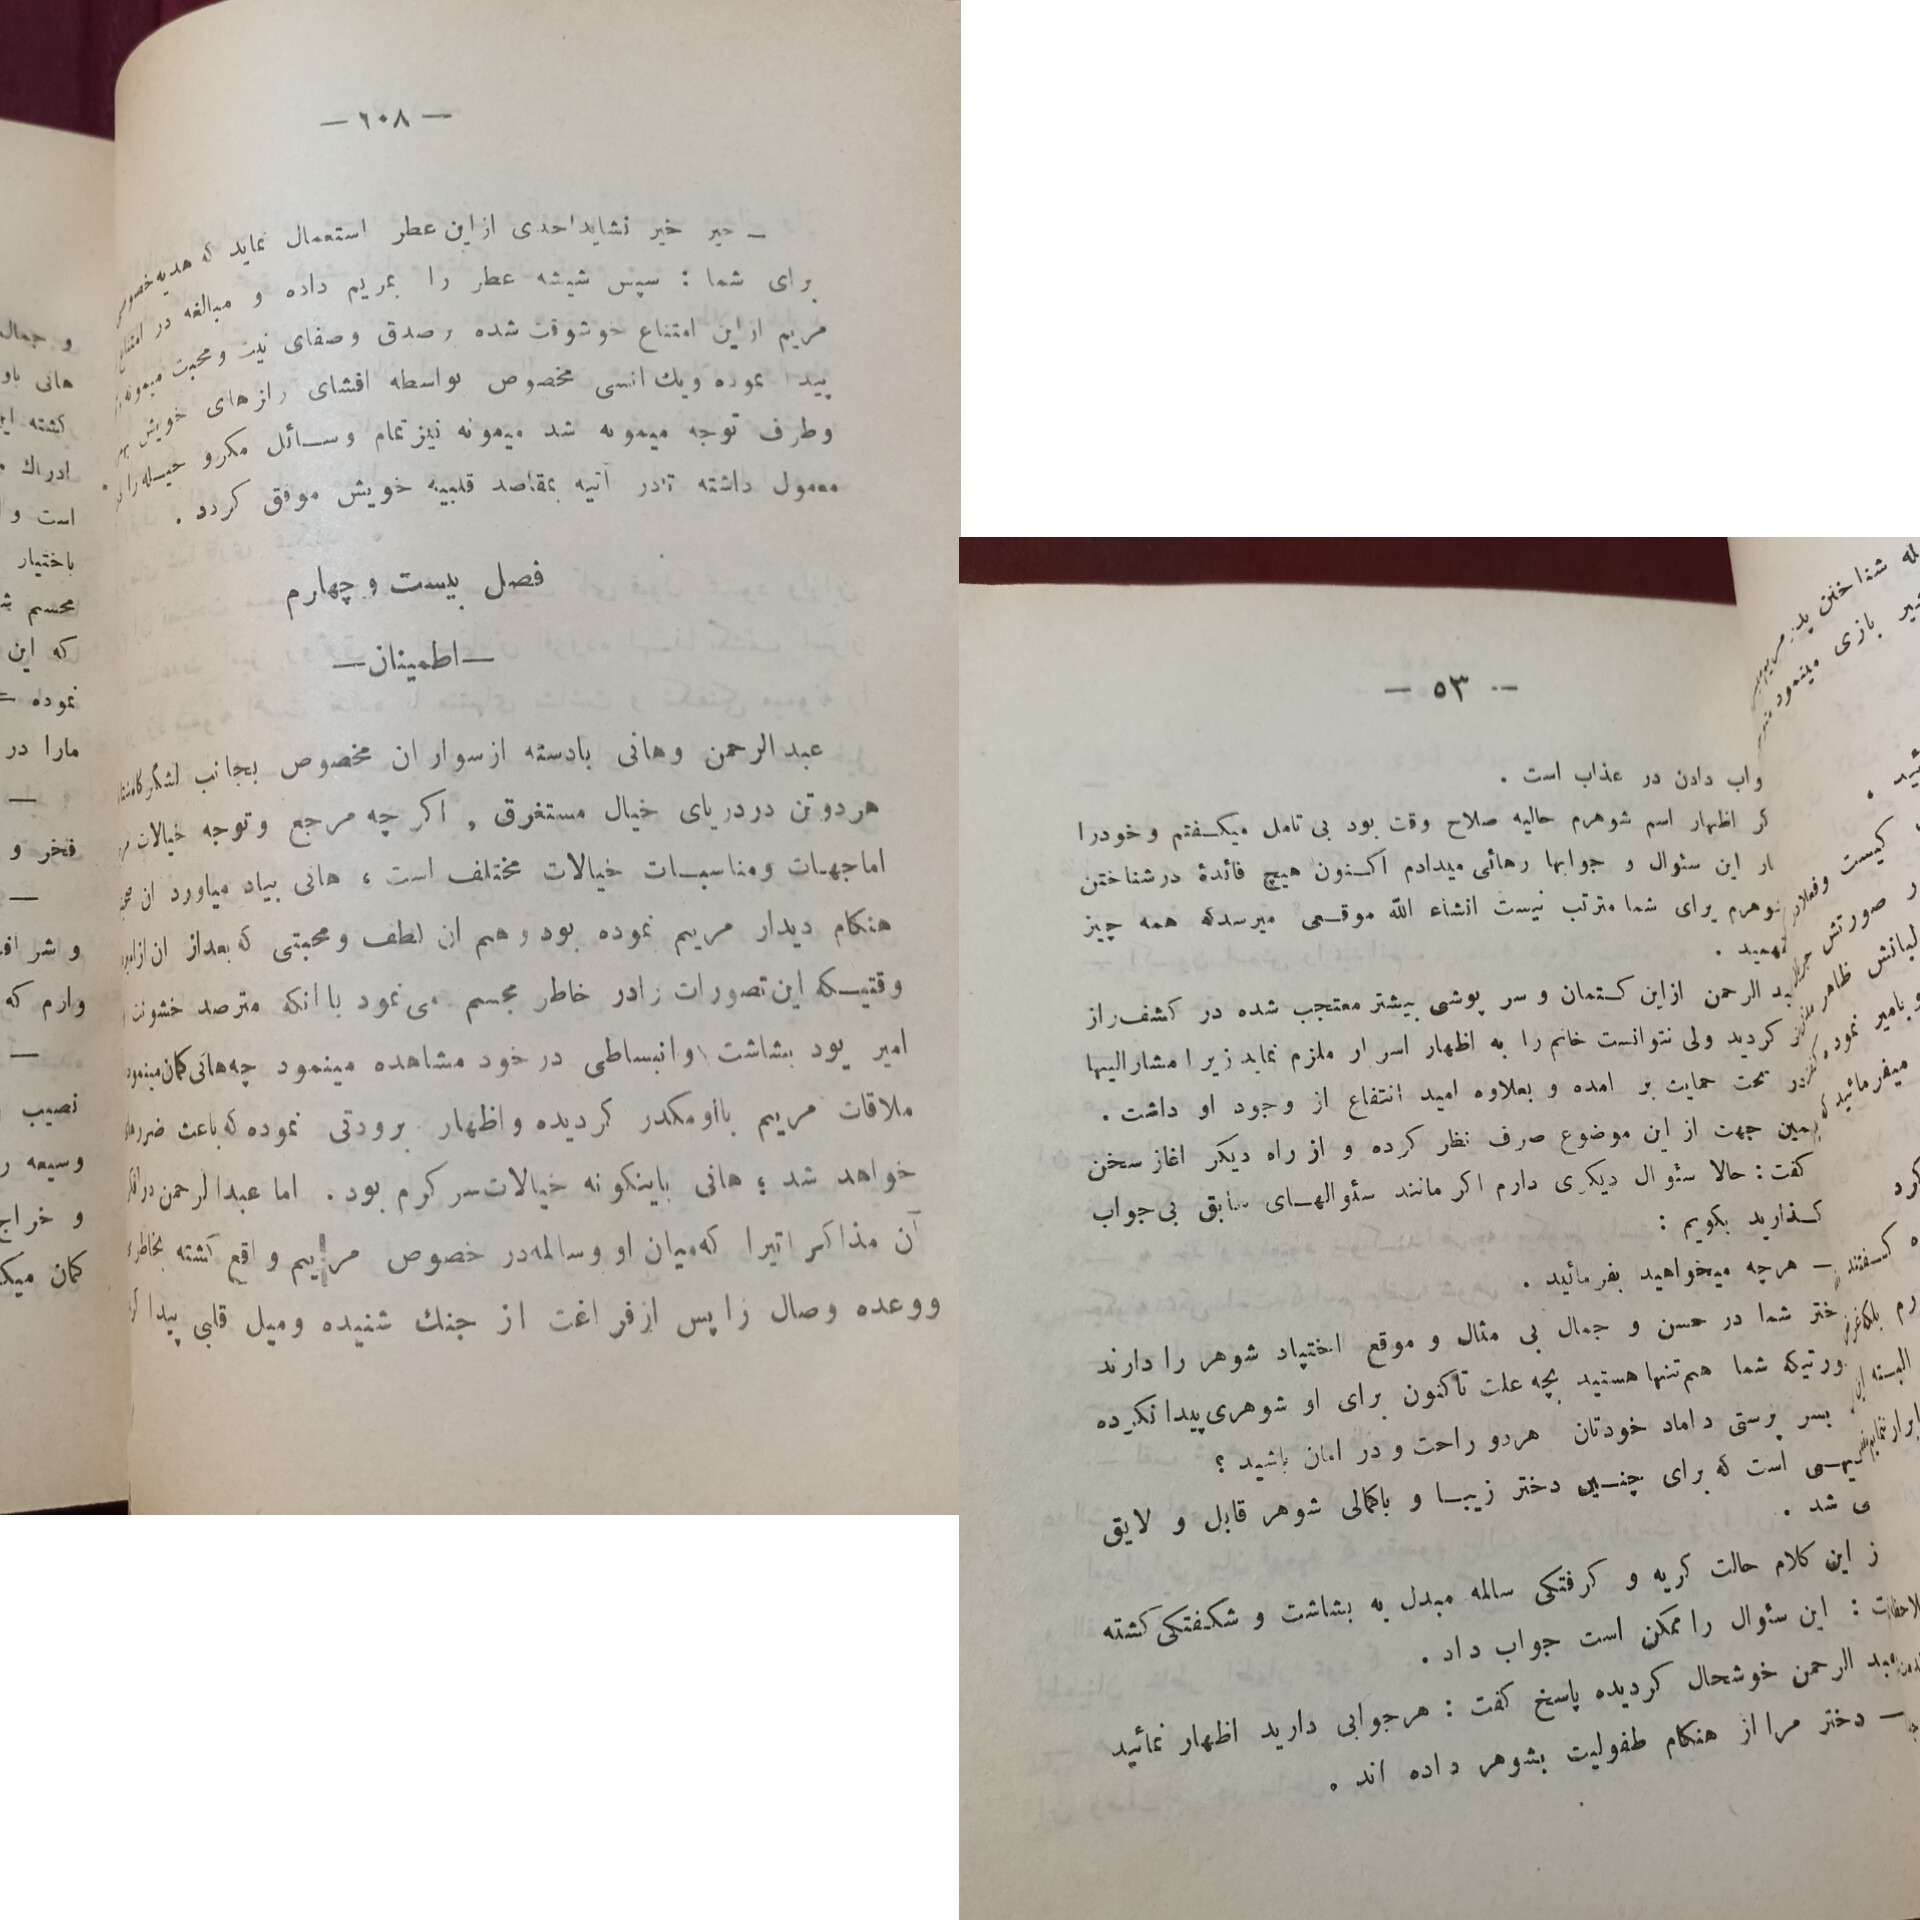 — ٦٠٨ —
— خیر خیر نشاید احدی از این عطر استعمال نماید که هدیه خصوصی
برای شما : سپس شیشه عطر را بمریم داده و مبالغه در امتناع
مریم از این امتناع خوشوقت شده بر صدق و صفای نیت و محبت میمونه
پیدا نموده و یک انسی مخصوص بواسطه افشای رازهای خویش
وطرف توجه میمونه شد میمونه نیز تمام وسائل مکر و حیله را
معمول داشته تادر آتیه بمقاصد قلبیه خویش موفق کردد .
فصل بیست و چهارم
— اطمینان —
عبدالرحمن وهانی بادسته ازسواران مخصوص بجانب لشکرکاه
هردوتن دردریای خیال مستغرق , اکرچه مرجع وتوجه خیالات
اماجهات ومناسبات خیالات مختلف است ، هانی بیاد میاورد ان
هنکام دیدار مریم نموده بود وهم ان لطف ومحبتی که بعداز ان از
وقتیکه این تصورات رادر خاطر مجسم می نمود باانکه مترصد خشونت
امیر بود بشاشت وانبساطی درخود مشاهده مینمود چه هانی کمان مینمود
ملاقات مریم بااومکدر کردیده واظهار برودتی نموده که باعث ضرر
خواهد شد ؛ هانی باینکونه خیالات سرکرم بود . اما عبدالرحمن در
آن مذاکراتیرا که میان او وسالمه در خصوص مریم واقع کشته بخاطر
ووعده وصال راپس ازفراغت از جنك شنیده ومیل قلبی پیدا
و جمال
هانی باو
کشته
ادراك
است و
باختیار
مجسم
که این
نموده
مارا در
—
فخر و
—
و شر
وارم که
—
نصیب
وسیعه
و خراج
کمان
— ٥٣ —
واب دادن در عذاب است .
کر اظهار اسم شوهرم حالیه صلاح وقت بود بی تامل میکفتم وخودرا
ار این سئوال و جوابها رهائی میدادم اکنون هیچ فائدهٔ درشناختن
وهرم برای شما مترتب نیست انشاء الله موقعی میرسدکه همه چیز
همید .
بد الرحمن ازاین کتمان و سر پوشی بیشتر معتجب شده در کشف راز
کردید ولی نتوانست خانم را به اظهار اسرار ملزم نماید زیرا مشارالیها
در تحت حمایت بر امده و بعلاوه امید انتفاع از وجود او داشت .
همین جهت از این موضوع صرف نظر کرده و از راه دیکر اغاز سخن
کفت : حالا سئوال دیکری دارم اکر مانند سئوالهای سابق بی جواب
کذارید بکویم :
— هرچه میخواهید بفرمائید .
ختر شما در حسن و جمال بی مثال و موقع اختیاد شوهر را دارند
ورتیکه شما هم تنها هستید بچه علت تاکنون برای او شوهری پیدا نکرده
بسر پرستی داماد خودتان هردو راحت و در امان باشید ؟
است که برای چنین دختر زیبا و باکمالی شوهر قابل و لایق
ی شد .
ز این کلام حالت کریه و کرفتکی سالمه مبدل به بشاشت و شکفتکی کشته
: این سئوال را ممکن است جواب داد .
بد الرحمن خوشحال کردیده پاسخ کفت : هرجوابی دارید اظهار نمائید
— دختر مرا از هنکام طفولیت بشوهر داده اند .
له شناختن
بازی مینمود
کیست
صورتش
لبانش ظاهر
نمود
میفرمائید
کرد
کفتند
البسته